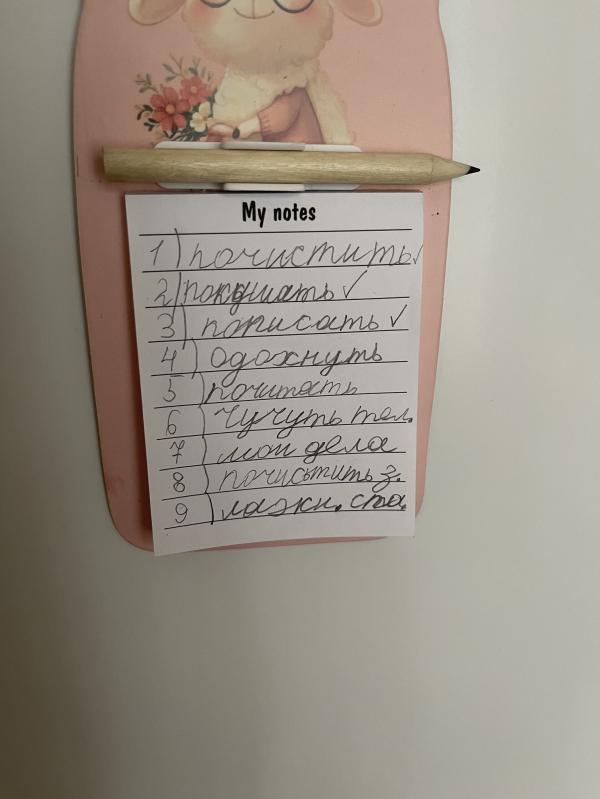 My notes
1) почистить ✓
2) покушать ✓
3) пописать ✓
4) одохнуть
5) почитать
6) Чучуть тел.
7) мои дела
8) почисьтить з.
9) лажи. спа.